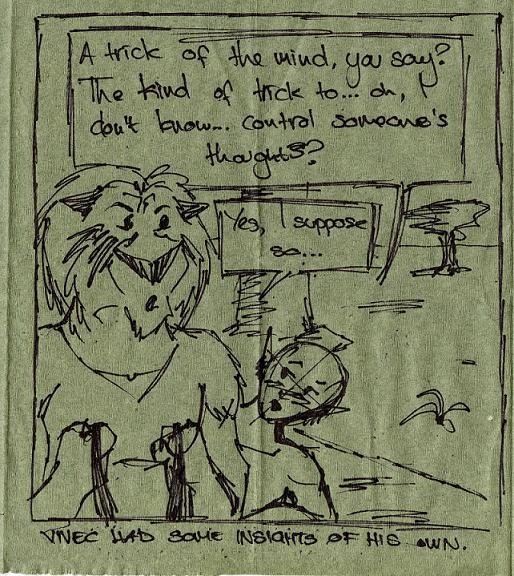 A trick of the mind, you say?
The kind of trick to... oh, I
don't know... control someone's
thoughts?
Yes, I suppose
so...
VIVEC HAD SOME INSIGHTS OF HIS OWN.